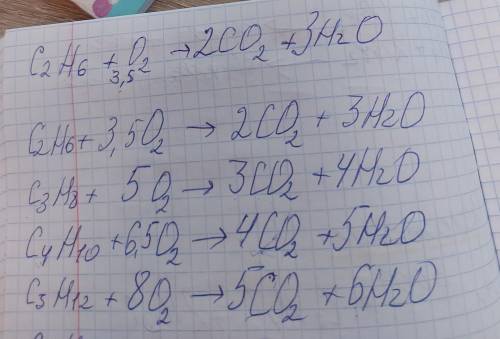 C₂H₆ + O₂ → 2CO₂ + 3H₂O
3,5
C₂H₆ + 3,5O₂ → 2CO₂ + 3H₂O
C₃H₈ + 5O₂ → 3CO₂ + 4H₂O
C₄H₁₀ + 6,5O₂ → 4CO₂ + 5H₂O
C₅H₁₂ + 8O₂ → 5CO₂ + 6H₂O